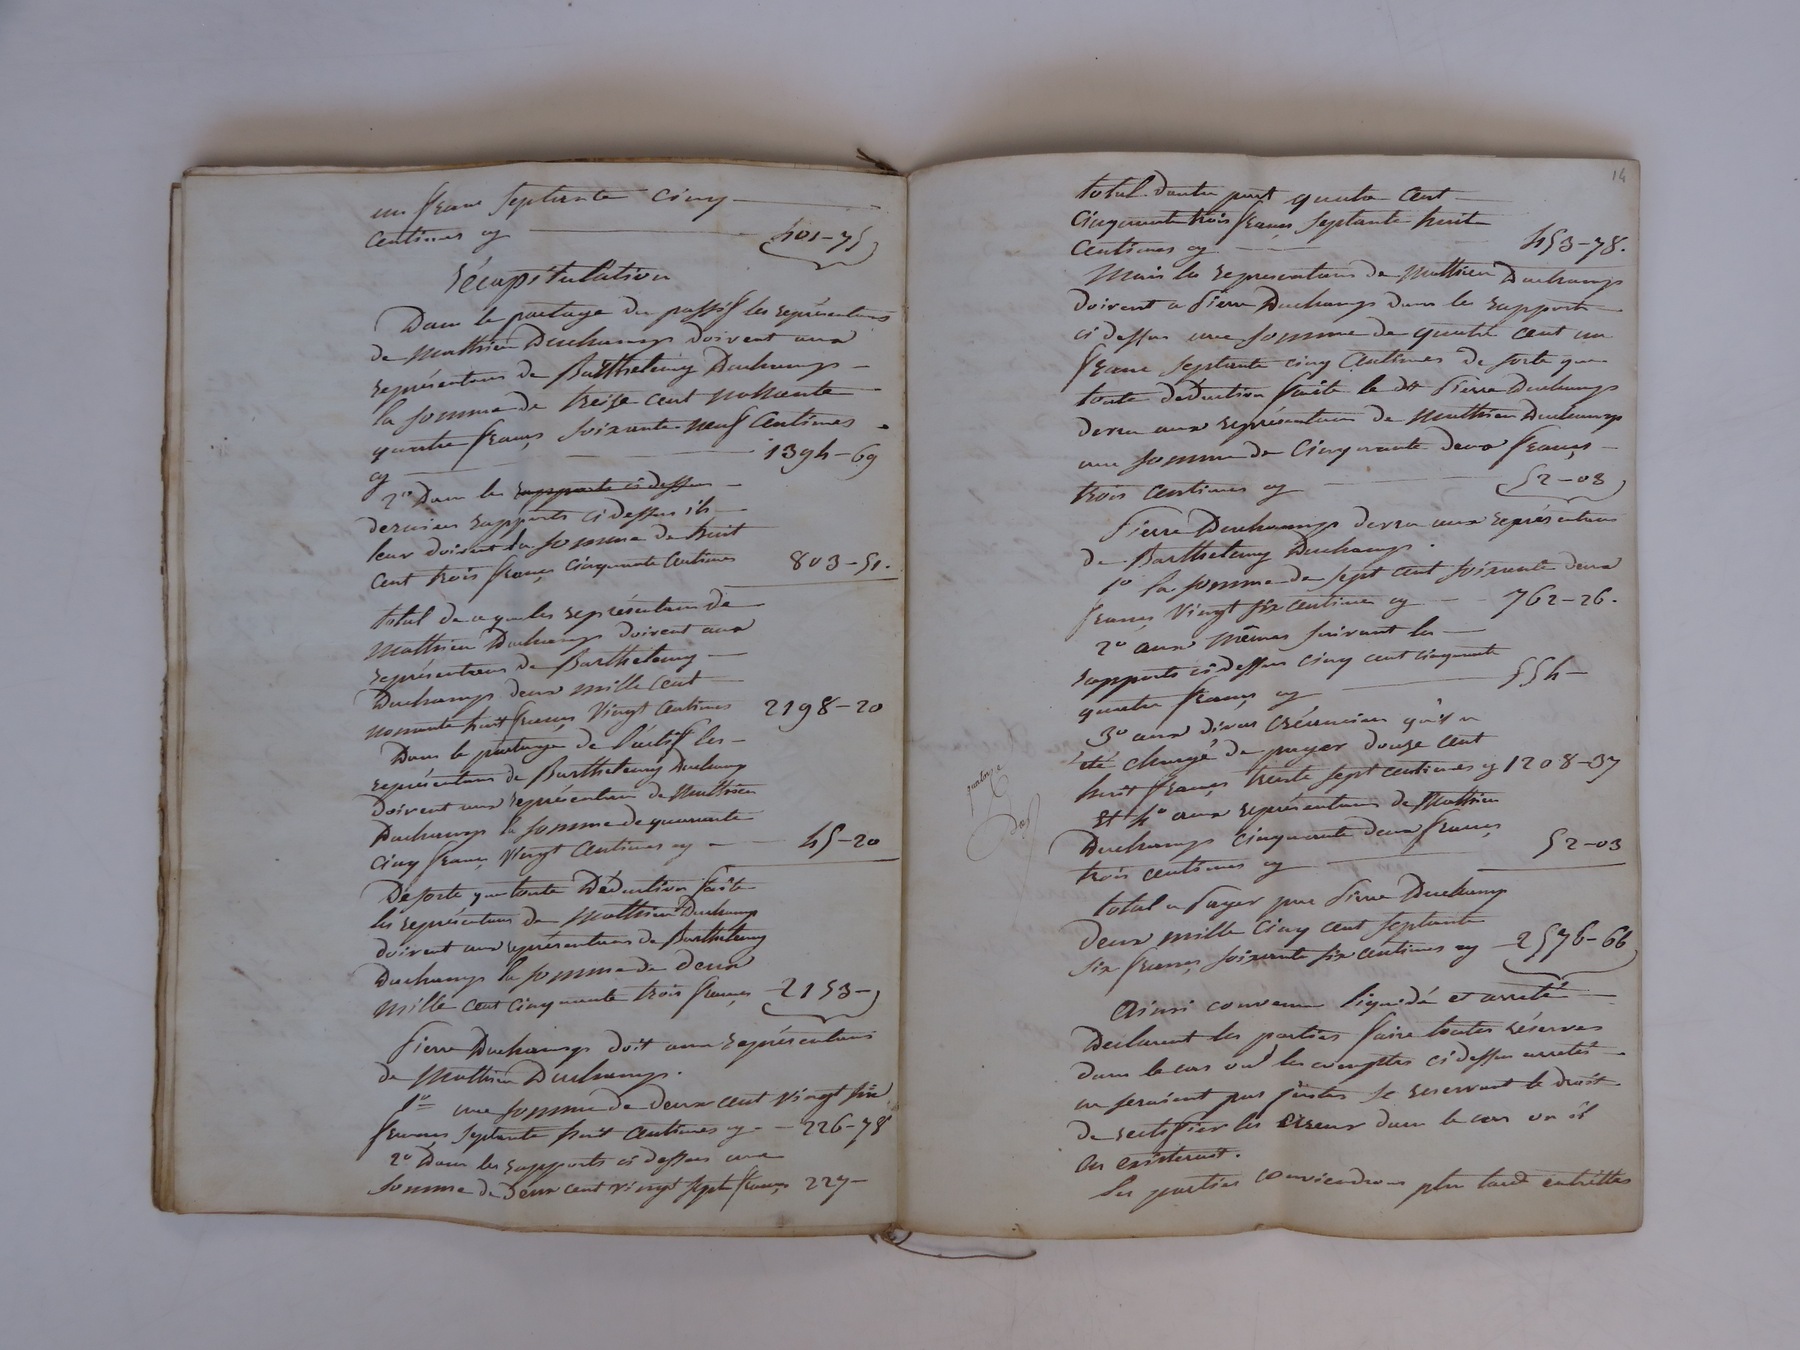 un franc septante cinq
centimes cy 401-75
Récapitulation
Dans le partage du passif les représentans
de Mathieu Duchamps doivent aux
représentans de Barthelemy Duchamps
la somme de treize cent nonante
quatre francs soixante neuf centimes
cy 1394-69
2° Dans les rapports ci dessus
derniers rapports ci dessus ils
leur doivent la somme de huit
cent trois francs cinquante centimes 803-51.
total de ce que les représentans de
Mathieu Duchamps doivent aux
représentans de Barthelemy
Duchamps deux mille cent
nonante huit francs vingt centimes 2198-20
Dans le partage de l'actif les
représentans de Barthelemy Duchamp
doivent aux représentans de Mathieu
Duchamps la somme de quarante
cinq francs vingt centimes cy 45-20
De sorte que toute Déduction faite
les représentans de Mathieu Duchamp
doivent aux représentans de Barthelemy
Duchamps la somme de deux
mille cent cinquante trois francs 2153-
Pierre Duchamps doit aux représentans
de Mathieu Duchamps.
1° une somme de deux cent vingt six
francs septante huit centimes cy 226-78
2° Dans les rapports ci dessus une
somme de deux cent vingt sept francs 227-
14
total d'autre part quatre cent
cinquante trois francs septante huit
centimes cy 453-78.
Mais les représentans de Mathieu Duchamps
doivent a Pierre Duchamps dans les rapports
ci dessus une somme de quatre cent un
franc septante cinq centimes de sorte que
toute déduction faite le dit Pierre Duchamps
devra aux représentans de Mathieu Duchamps
une somme de cinquante deux francs
trois centimes cy 52-03
Pierre Duchamps devra aux représentans
de Barthelemy Duchamps.
1° la somme de sept cent soixante deux
francs vingt six centimes cy 762-26.
2° aux mêmes suivant les
rapports ci dessus cinq cent cinquante
quatre francs cy 554-
3° aux divers créanciers qu'il a
été chargé de payer douze cent
huit francs trente sept centimes cy 1208-37
Et 4° aux représentans de Mathieu
Duchamps cinquante deux francs
trois centimes cy 52-03
quatorze
total a payer par Pierre Duchamp
deux mille cinq cent septante
six francs soixante six centimes cy 2576-66
Ainsi convenu liquidé et arreté
Déclarent les parties faire toutes réserves
dans le cas ou les comptes ci dessus arretés
ne seraient pas justes se reservant le droit
de rectifier les erreurs dans le cas ou il
en existerait.
Les parties conviendrons plus tard entr'elles